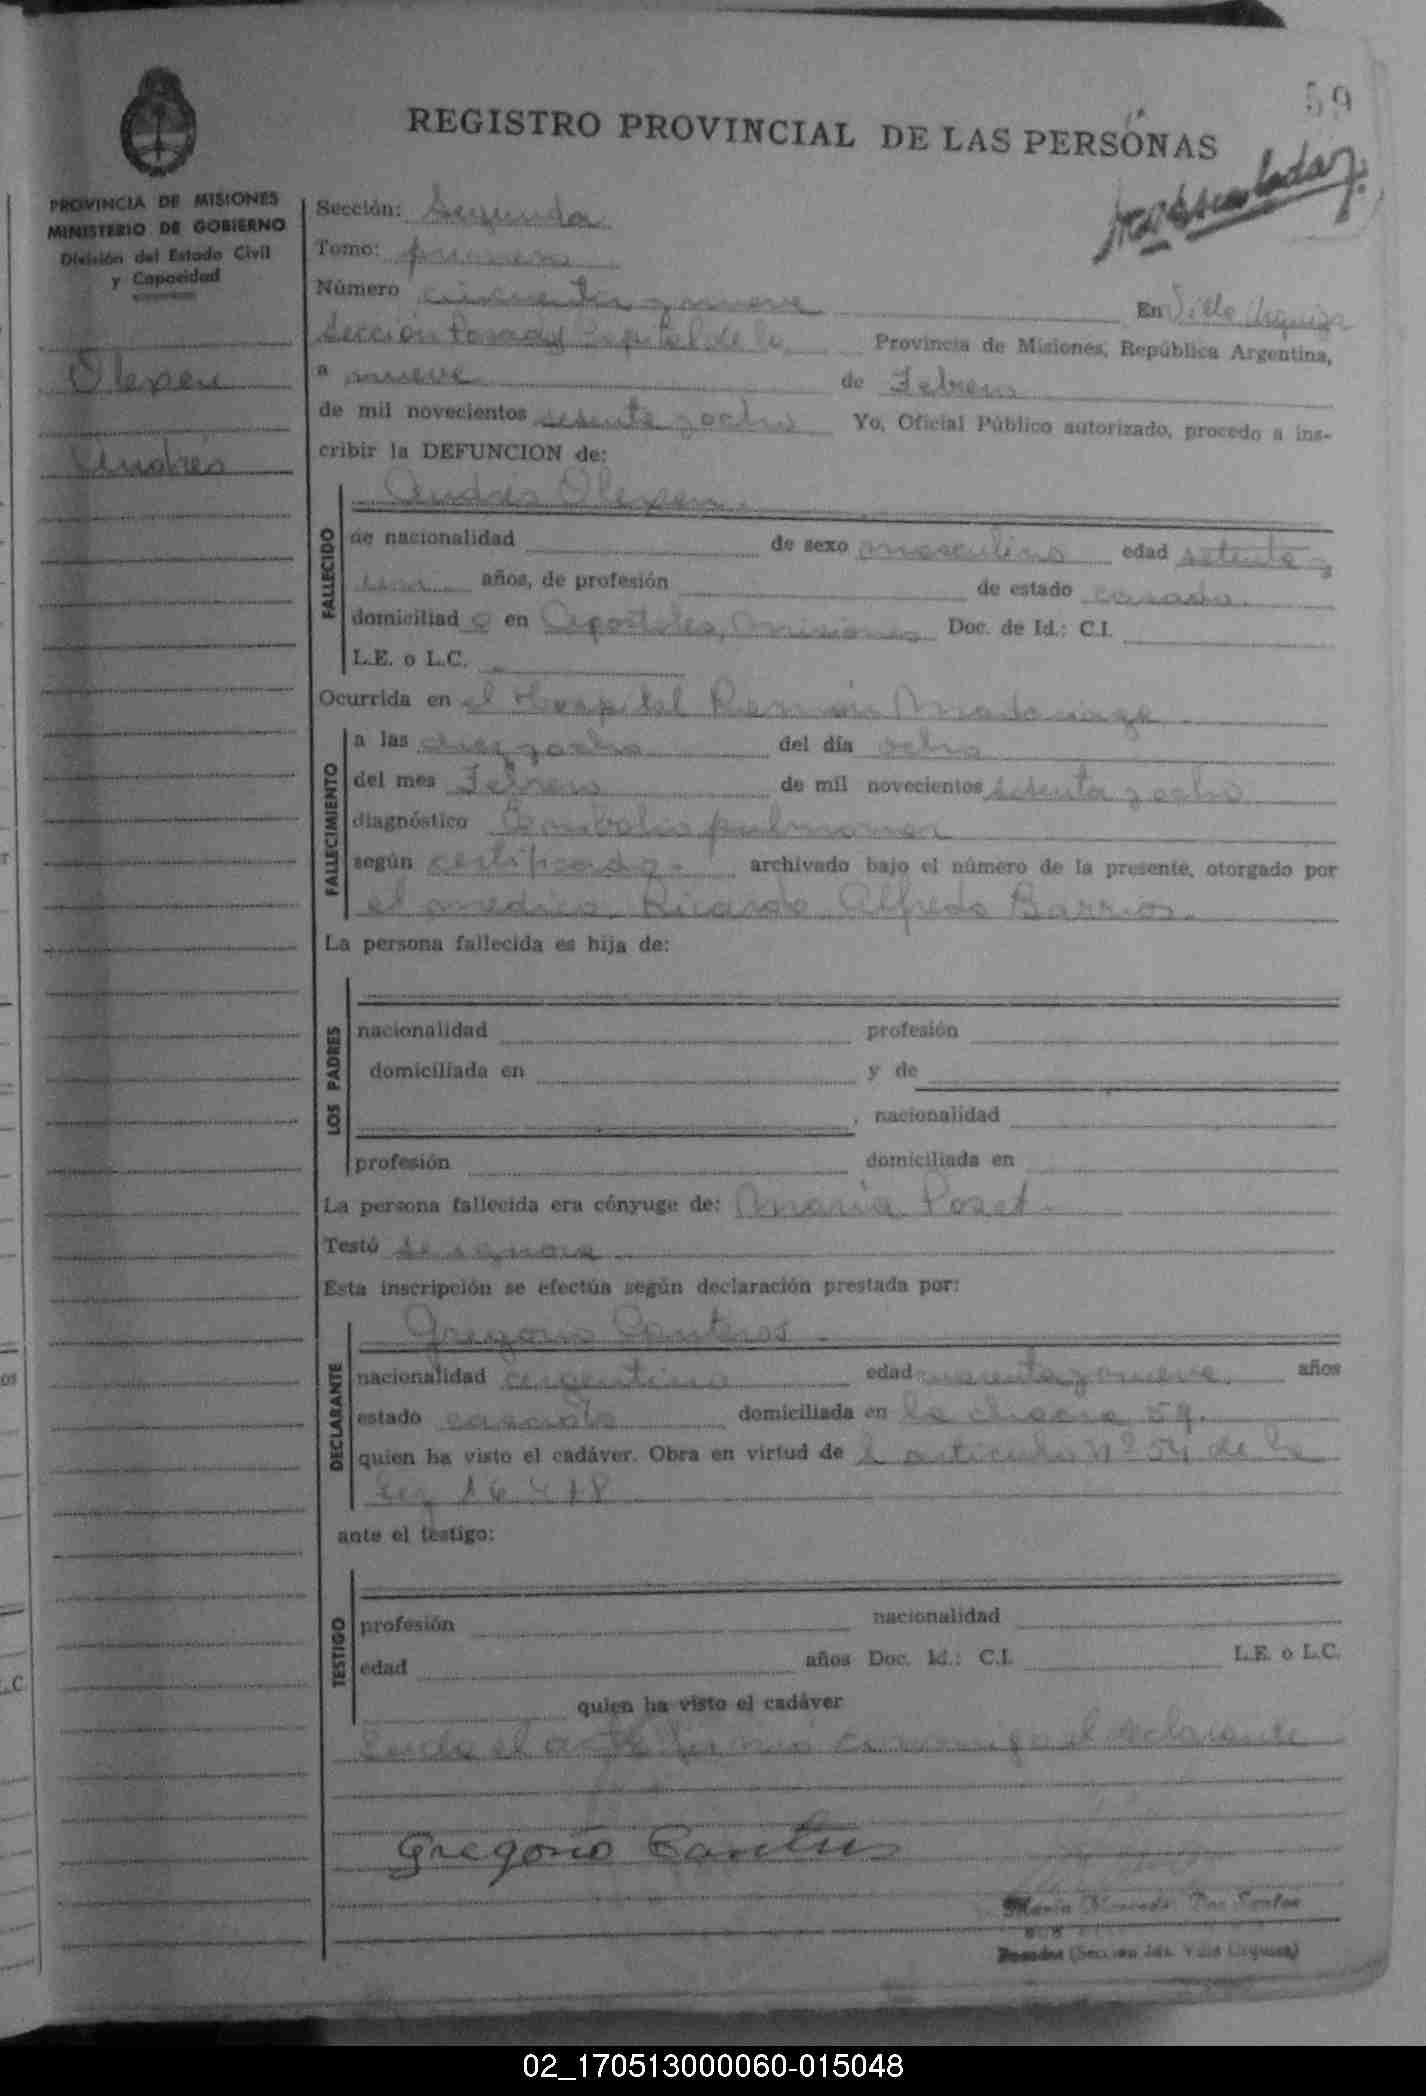 59
REGISTRO PROVINCIAL DE LAS PERSONAS
PROVINCIA DE MISIONES
MINISTERIO DE GOBIERNO
División del Estado Civil
y Capacidad
Olexen
Andrés
Sección: Segunda
Tomo: primero
Número cincuenta y nueve En Villa Urquiza
Sección Posadas Capital de la Provincia de Misiones, República Argentina,
a nueve de Febrero
de mil novecientos sesenta y ocho Yo, Oficial Público autorizado, procedo a ins-
cribir la DEFUNCION de:
Andrés Olexen
FALLECIDO
de nacionalidad de sexo masculino edad setenta y
un años, de profesión de estado casado
domiciliad o en Apóstoles, Misiones Doc. de Id.: C.I.
L.E. o L.C.
Ocurrida en el Hospital Ramón Madariaga
FALLECIMIENTO
a las diez y ocho del día ocho
del mes Febrero de mil novecientos sesenta y ocho
diagnóstico Embolia pulmonar
según certificado archivado bajo el número de la presente, otorgado por
el medico Ricardo Alfredo Barrios.
La persona fallecida es hija de:
LOS PADRES
nacionalidad profesión
domiciliada en y de
, nacionalidad
profesión domiciliada en
La persona fallecida era cónyuge de: Maria Poset
Testó se ignora
Esta inscripción se efectúa según declaración prestada por:
Gregorio Canteros
DECLARANTE
nacionalidad argentino edad y nueve años
estado casado domiciliada en la chacra 59.
quien ha visto el cadáver. Obra en virtud de l articulo Nº 54 de la
ley 16.478
ante el testigo:
TESTIGO
profesión nacionalidad
edad años Doc. Id.: C.I. L.E. o L.C.
quien ha visto el cadáver
Leida el acta firmó conmigo el declarante
Gregorio Canteros
María Dos Santos
Posadas (Sección 2da. Villa Urquiza)
02_170513000060-015048